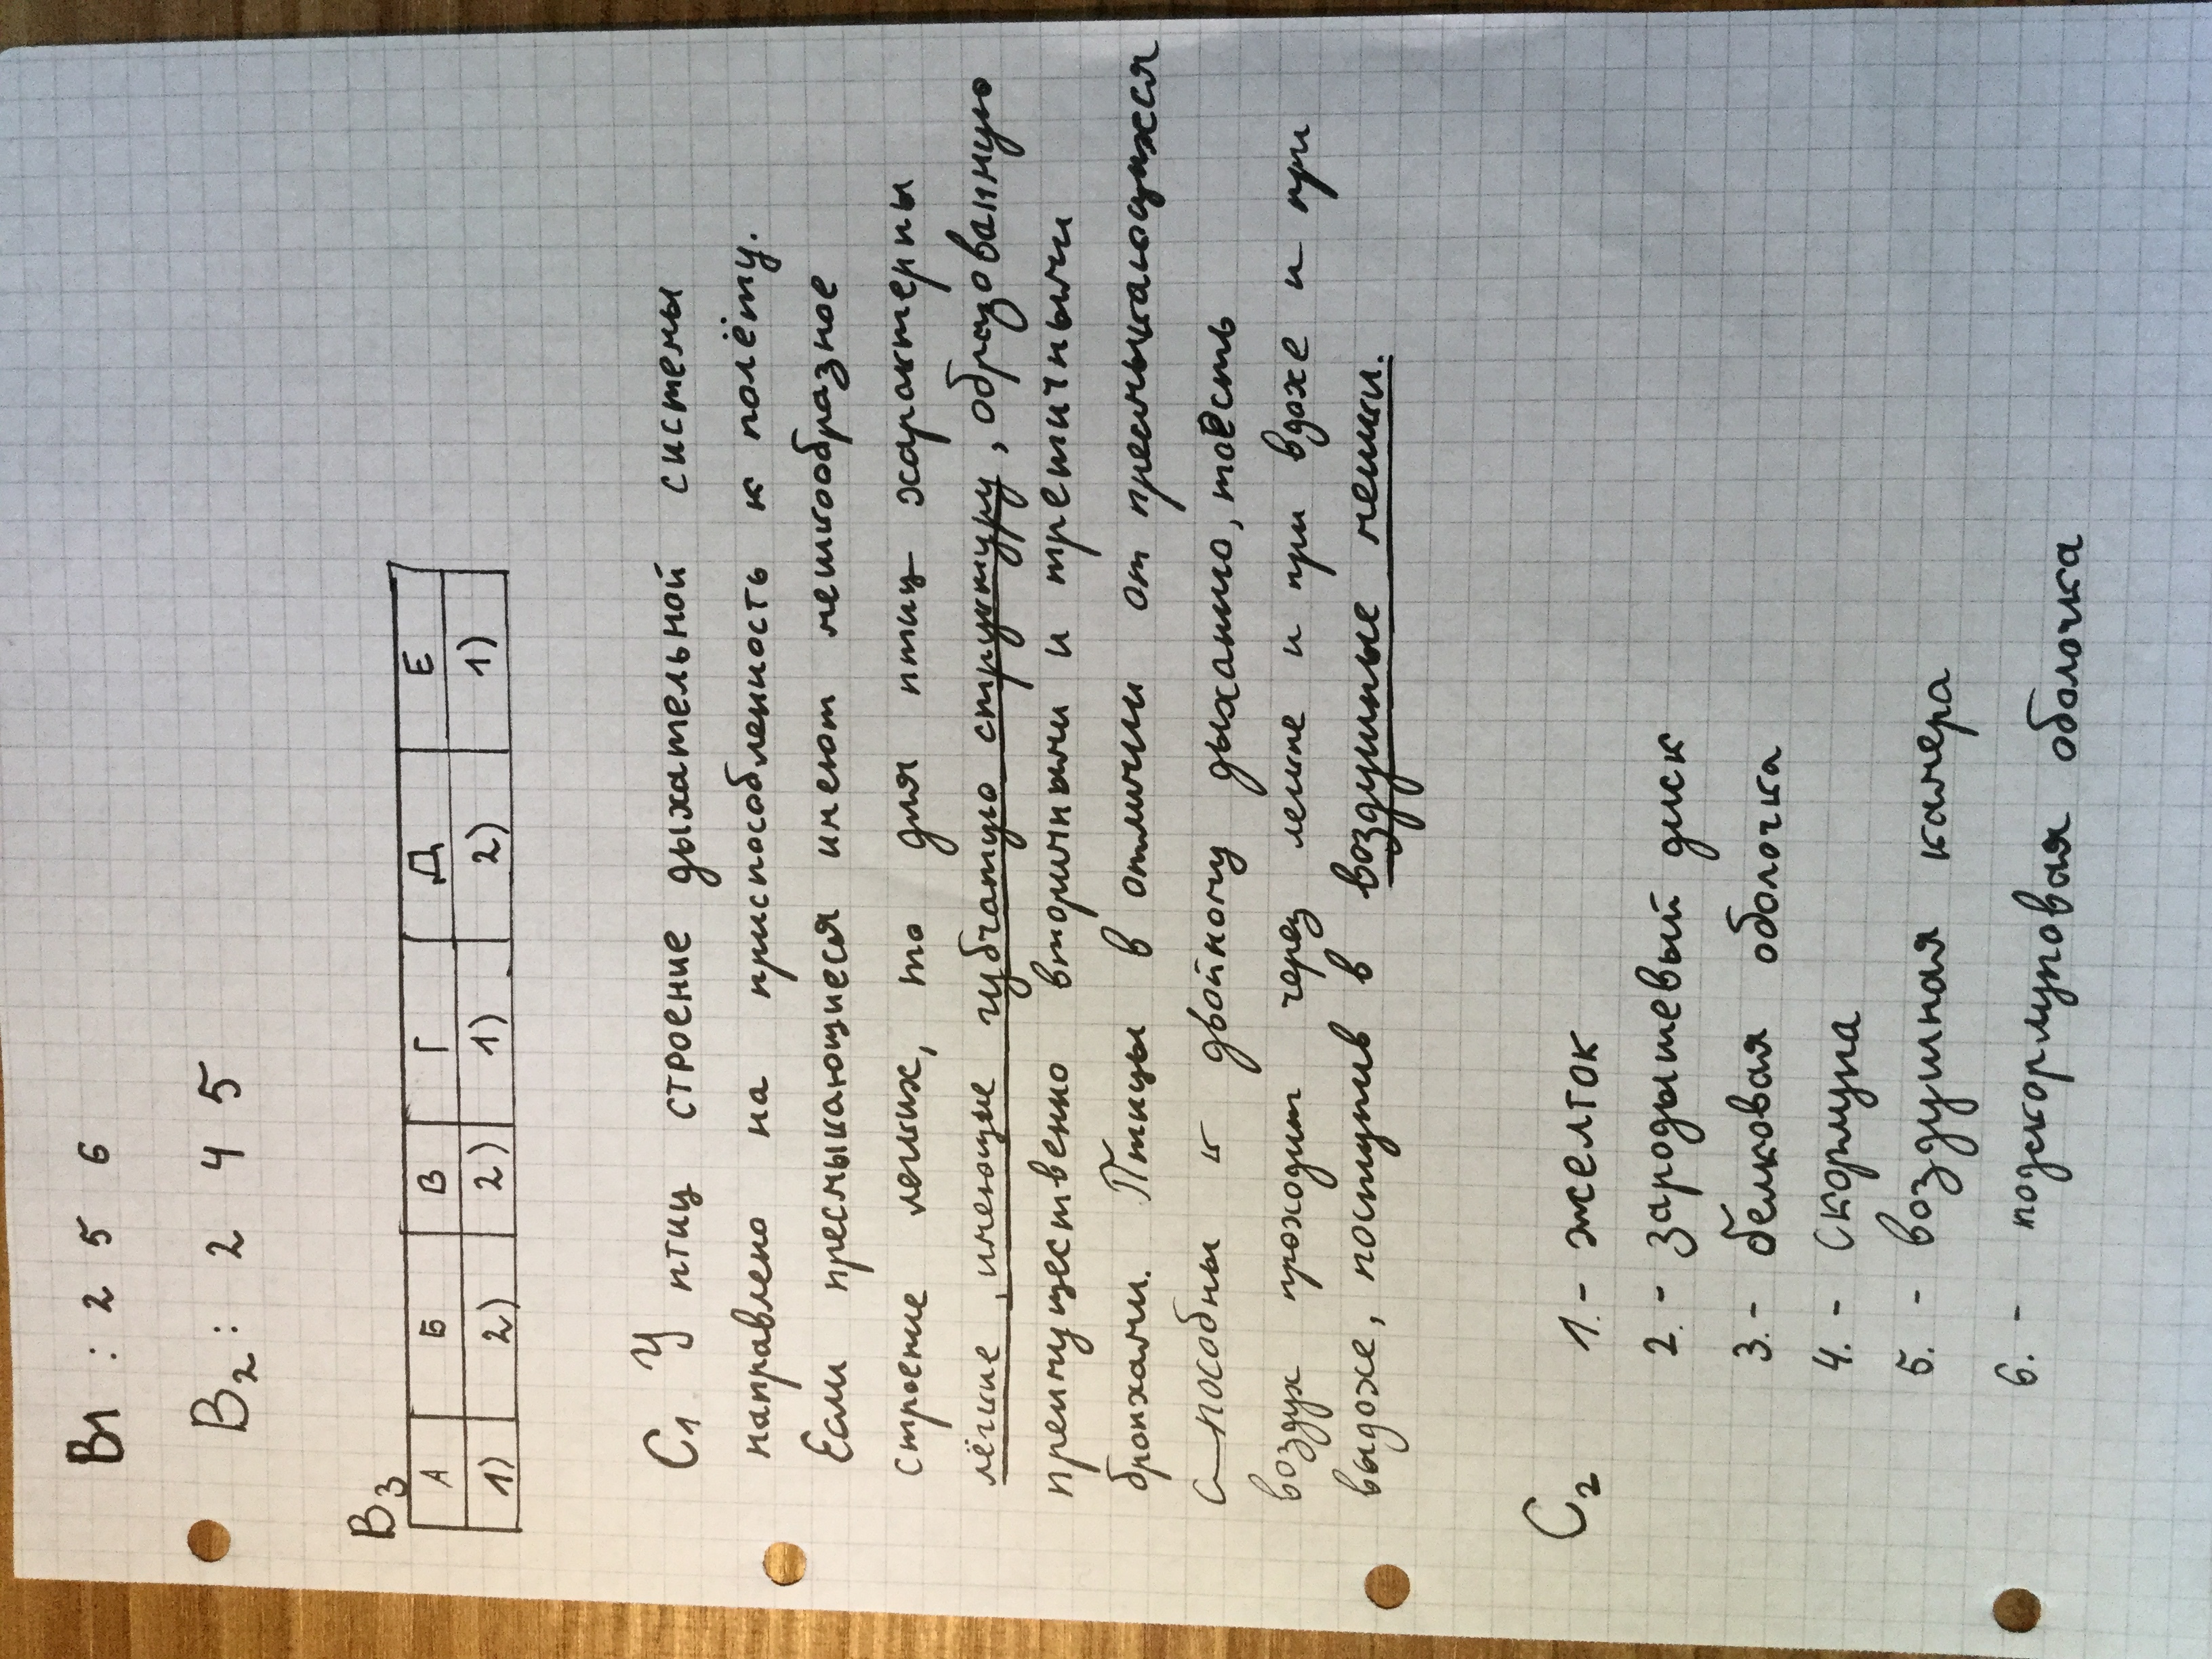 В1 : 2 5 6
В2 : 2 4 5
В3
А Б В Г Д Е
1) 2) 2) 1) 2) 1)
С1 У птиц строение дыхательной системы
направлено на приспособленность к полёту.
Если пресмыкающиеся имеют мешкообразное
строение легких, то для птиц характерны
лёгкие, имеющие губчатую структуру, образованную
преимущественно вторичными и третичными
бронхами. Птицы в отличии от пресмыкающихся
способны к двойному дыханию, то есть
воздух проходит через легкие и при вдохе и при
выдохе, поступив в воздушные мешки.
С2 1. - желток
2. - зародышевый диск
3. - белковая оболочка
4. - скорлупа
5. - воздушная камера
6. - подскорлуповая оболочка